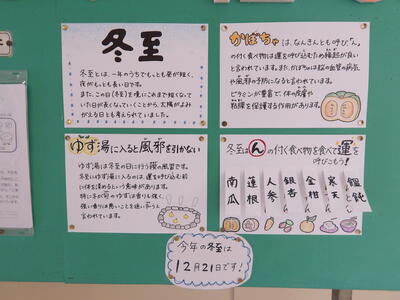 冬至
冬至とは、一年のうちでもっとも昼が短く、
夜がもっとも長い日です。
また、この日(冬至)を境にこれまで短くなって
いた日が長くなっていくことから、太陽がよみ
がえる日とも考えられていました。
かぼちゃは、なんきんとも呼び「ん」
の付く食べ物は運を呼び込むため縁起が良い
と言われています。また、かぼちゃは脳の血管の病気
や風邪の予防になると言われています。
ビタミンが豊富で、体の皮膚や
粘膜を保護する作用があります。
ゆず湯に入ると風邪を引かない
ゆず湯は冬至の日に行う禊の風習です。
冬至にゆず湯に入るのは、運を呼び込む前
に体を清めるという意味があります。
特に冬が旬のゆずは香りも強く、
強い香りは悪いことを追い払うと
言われています。
冬至はんの付く食べ物を食べて運を
呼びこもう!
南瓜
蓮根
人参
銀杏
金柑
寒天
饂飩
今年の冬至は
12月21日です!